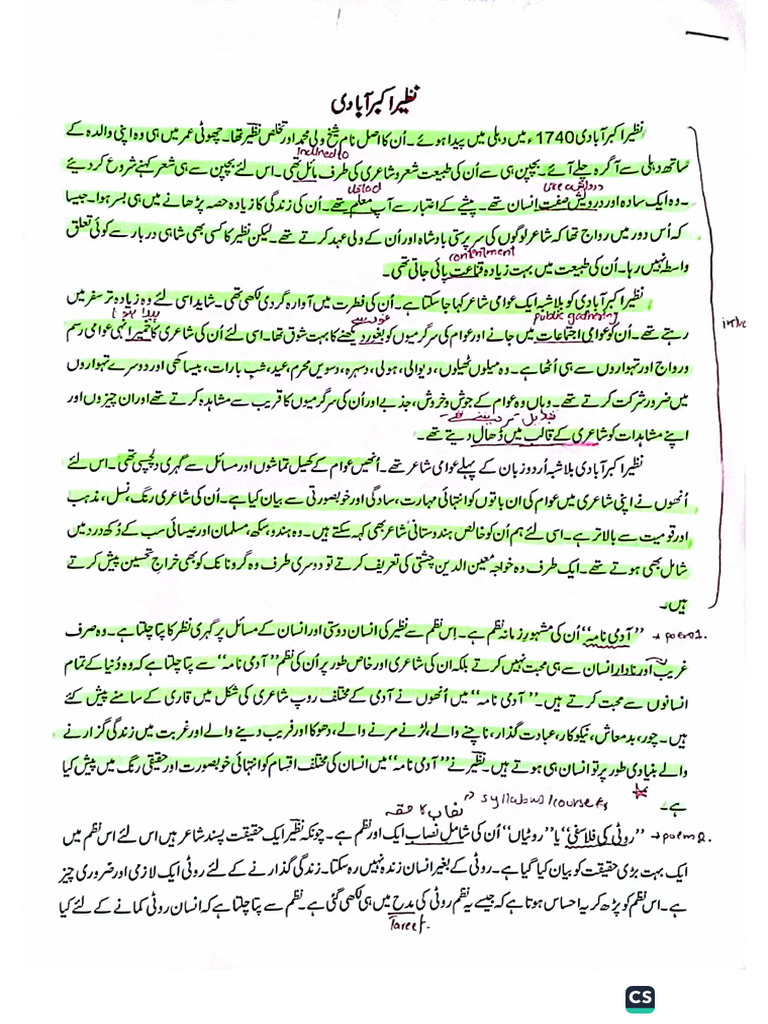 نظیر اکبر آبادی
نظیر اکبر آبادی 1740ء میں دہلی میں پیدا ہوئے۔ اُن کا اصل نام شیخ ولی محمد اور تخلص نظیر تھا۔ چھوٹی عمر میں ہی وہ اپنی والدہ کے
inclined to
ساتھ دہلی سے آگرہ چلے آئے۔ بچپن ہی سے اُن کی طبیعت شعر و شاعری کی طرف مائل تھی۔ اس لئے بچپن سے ہی شعر کہنے شروع کر دیئے
ustad
درویش
۔ وہ ایک سادہ اور درویش صفت انسان تھے۔ پیشے کے اعتبار سے آپ معلم تھے۔ اُن کی زندگی کا زیادہ حصہ پڑھانے میں ہی بسر ہوا۔ جیسا
کہ اُس دور میں رواج تھا کہ شاعر لوگوں کی سرپرستی بادشاہ اور اُن کے ولی عہد کرتے تھے۔ لیکن نظیر کا کسی بھی شاہی دربار سے کوئی تعلق
contentment
واسطہ نہیں رہا۔ اُن کی طبیعت میں بہت زیادہ قناعت پائی جاتی تھی۔
نظیر اکبر آبادی کو بلاشبہ ایک عوامی شاعر کہا جا سکتا ہے۔ اُن کی فطرت میں آوارہ گردی لکھی تھی۔ شاید اسی لئے وہ زیادہ تر سفر میں
public gathering
غور سے
پیدا ہونا
رہتے تھے۔ اُن کو عوامی اجتماعات میں جانے اور عوام کی سرگرمیوں کو بغور دیکھنے کا بہت شوق تھا۔ اسی لئے اُن کی شاعری کا خمیر انہی عوامی رسم
و رواج اور تہواروں سے ہی اُٹھا ہے۔ وہ میلوں ٹھیلوں، دیوالی، ہولی، دسہرہ، دسویں محرم، عید، شب بارات، بیساکھی اور دوسرے تہواروں
میں ضرور شرکت کرتے تھے۔ وہاں وہ عوام کے جوش و خروش، جذبے اور اُن کی سرگرمیوں کا قریب سے مشاہدہ کرتے تھے اور ان چیزوں اور
تبدیل کر دیتے تھے
اپنے مشاہدات کو شاعری کے قالب میں ڈھال دیتے تھے۔
نظیر اکبر آبادی بلاشبہ اُردو زبان کے پہلے عوامی شاعر تھے۔ انھیں عوام کے کھیل تماشوں اور مسائل سے گہری دلچسپی تھی۔ اس لئے
اُنھوں نے اپنی شاعری میں عوام کی ان باتوں کو انتہائی مہارت، سادگی اور خوبصورتی سے بیان کیا ہے۔ اُن کی شاعری رنگ، نسل، مذہب
اور قومیت سے بالاتر ہے۔ اسی لئے ہم اُن کو خالص ہندوستانی شاعر بھی کہہ سکتے ہیں۔ وہ ہندو، سکھ، مسلمان اور عیسائی سب کے دُکھ درد میں
شامل بھی ہوتے تھے۔ ایک طرف وہ خواجہ معین الدین چشتی کی تعریف کرتے تو دوسری طرف وہ گرو نانک کو بھی خراجِ تحسین پیش کرتے
ہیں۔
→ poem 1.
”آدمی نامہ“ اُن کی مشہورِ زمانہ نظم ہے۔ اِس نظم سے نظیر کی انسان دوستی اور انسان کے مسائل پر گہری نظر کا پتا چلتا ہے۔ وہ صرف
غریب اور نادار انسان سے ہی محبت نہیں کرتے بلکہ ان کی شاعری اور خاص طور پر اُن کی نظم ”آدمی نامہ“ سے پتا چلتا ہے کہ وہ دُنیا کے تمام
انسانوں سے محبت کرتے ہیں۔ ”آدمی نامہ“ میں اُنھوں نے آدمی کے مختلف روپ شاعری کی شکل میں قاری کے سامنے پیش کئے
ہیں۔ چور، بدمعاش، نیکوکار، عبادت گذار، ناچنے والے، لڑنے مرنے والے، دھوکا اور فریب دینے والے اور غربت میں زندگی گزارنے
والے بنیادی طور پر تو انسان ہی ہوتے ہیں۔ نظیر نے ”آدمی نامہ“ میں انسان کی مختلف اقسام کو انتہائی خوبصورت اور حقیقی رنگ میں پیش کیا
ہے۔
syllabus/course
نصاب کا حصہ
→ poem 2.
”روٹی کی فلاسفی“ یا ”روٹیاں“ اُن کی شاملِ نصاب ایک اور نظم ہے۔ چونکہ نظیر ایک حقیقت پسند شاعر ہیں اس لئے اس نظم میں
ایک بہت بڑی حقیقت کو بیان کیا گیا ہے۔ روٹی کے بغیر انسان زندہ نہیں رہ سکتا۔ زندگی گذارنے کے لئے روٹی ایک لازمی اور ضروری چیز
ہے۔ اس نظم کو پڑھ کر یہ احساس ہوتا ہے کہ جیسے یہ نظم روٹی کی مدح میں ہی لکھی گئی ہے۔ نظم سے پتا چلتا ہے کہ انسان روٹی کمانے کے لئے کیا
Tareef.
CS